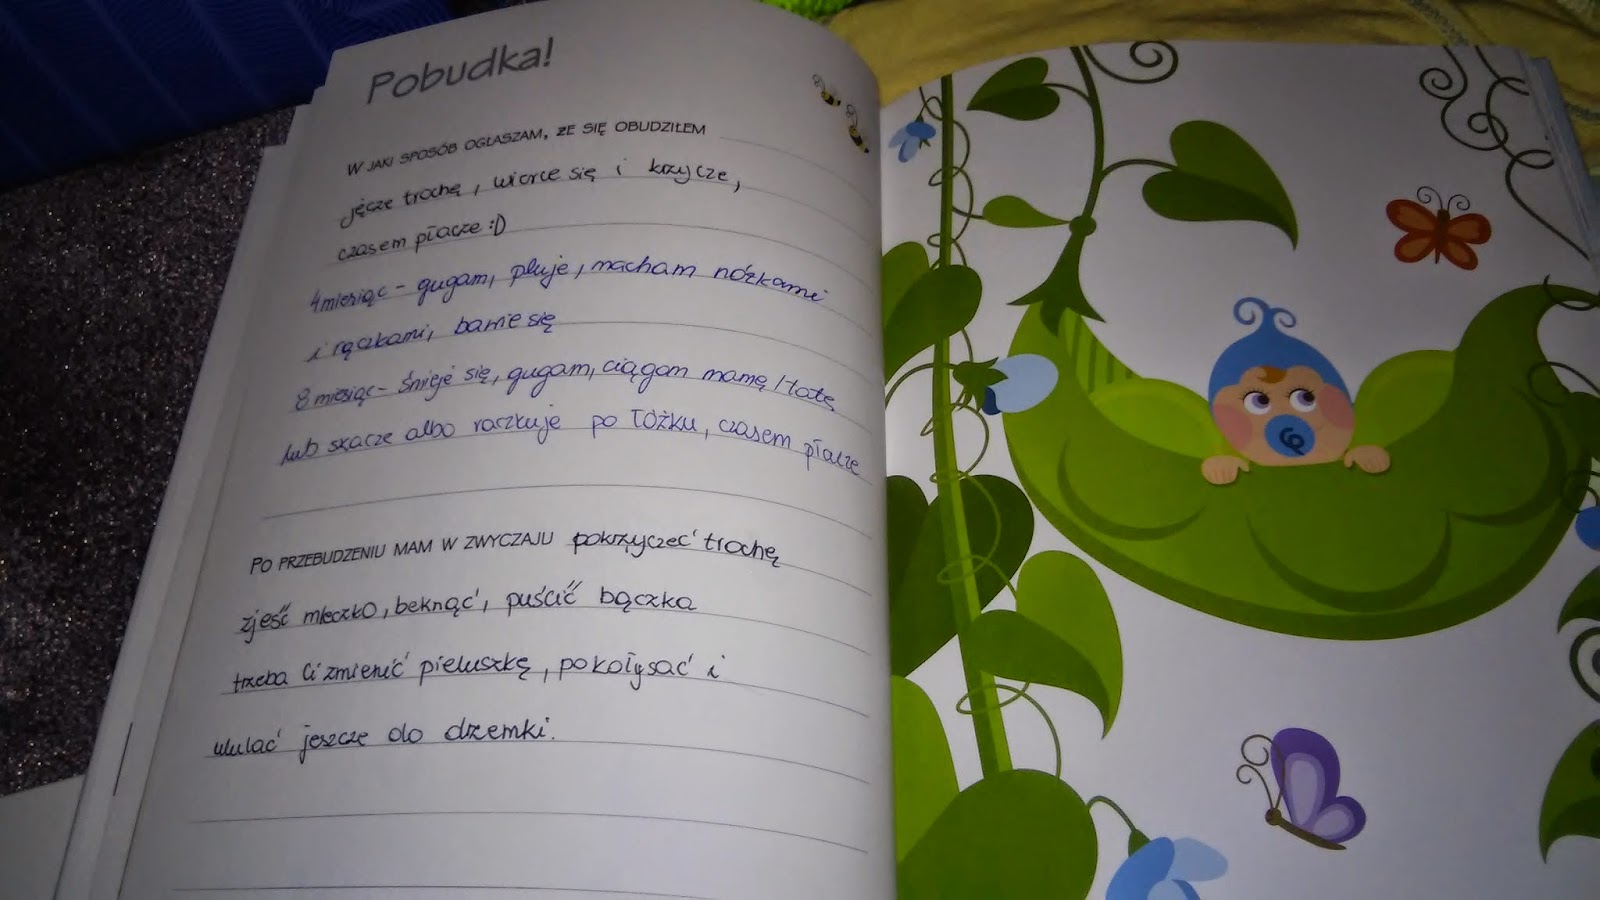 Pobudka!
W JAKI SPOSÓB OGŁASZAM, ŻE SIĘ OBUDZIŁEM
jęcze trochę, wierce się i krzycze,
czasem płacze :D
4 miesiąc - gugam, pluje, macham nóżkami
i rączkami, bawie się
8 miesiąc - śmieje się, gugam, ciągam mamę/tatę
lub skacze albo raczkuje po łóżku, czasem płacze
PO PRZEBUDZENIU MAM W ZWYCZAJU pokrzyczeć trochę
zjeść mleczko, beknąć, puścić bączka
trzeba Ci zmienić pieluszkę, pokołysać i
ululać jeszcze do drzemki.